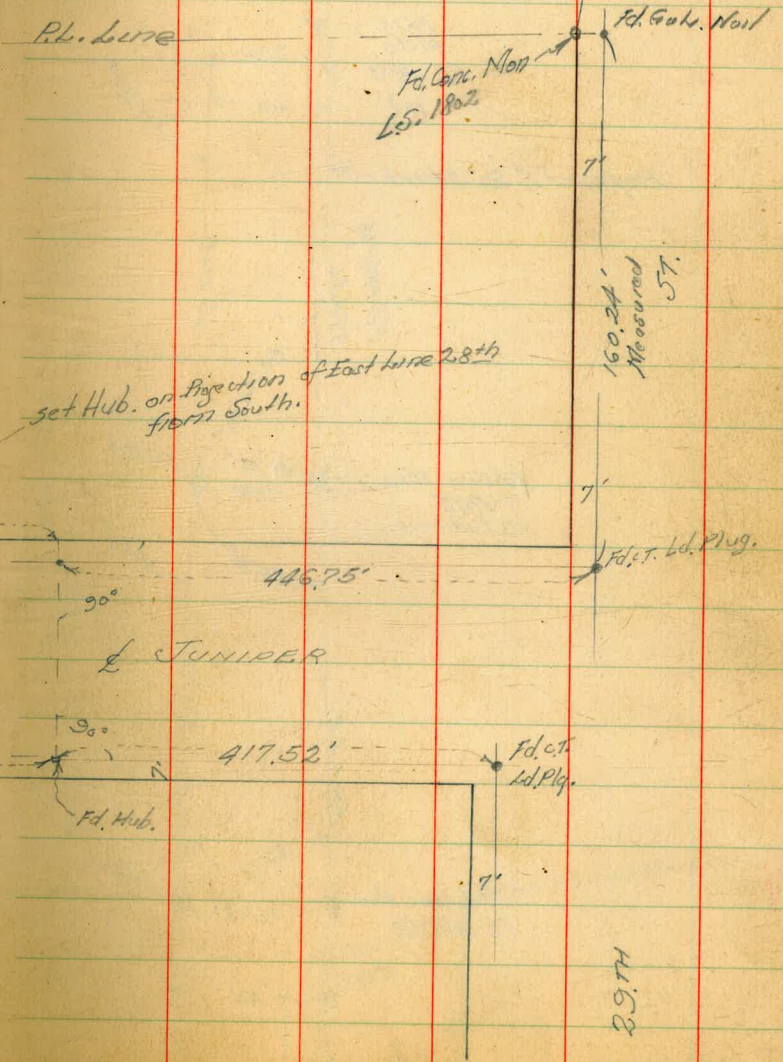 P.L. Line
Fd. Galv. Nail
Fd. Conc. Mon
L.S. 1802
7'
160.24'
Measured
ST.
set Hub. on Projection of East Line 28th
from South.
7'
Fd. c.T. Ld. Plug.
446.75'
90°
℄ JUNIPER
90°
417.52'
7'
Fd. c.T.
Ld. Plg.
Fd. Hub.
7'
29TH